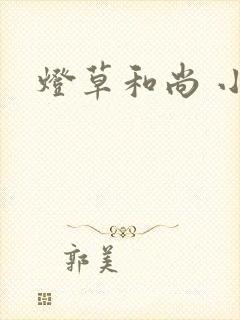 燈草和尚 小
郭美